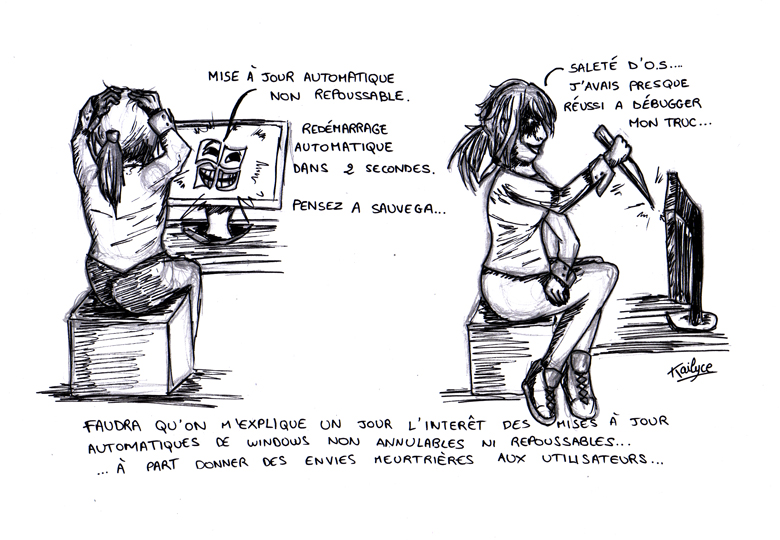 MISE À JOUR AUTOMATIQUE
NON REPOUSSABLE.
REDÉMARRAGE
AUTOMATIQUE
DANS 2 SECONDES.
PENSEZ A SAUVEGA...
SALETÉ D'O.S....
J'AVAIS PRESQUE
RÉUSSI A DÉBUGGER
MON TRUC...
Kailyce
FAUDRA QU'ON M'EXPLIQUE UN JOUR L'INTERÊT DES MISES À JOUR
AUTOMATIQUES DE WINDOWS NON ANNULABLES NI REPOUSSABLES...
...À PART DONNER DES ENVIES MEURTRIÈRES AUX UTILISATEURS...